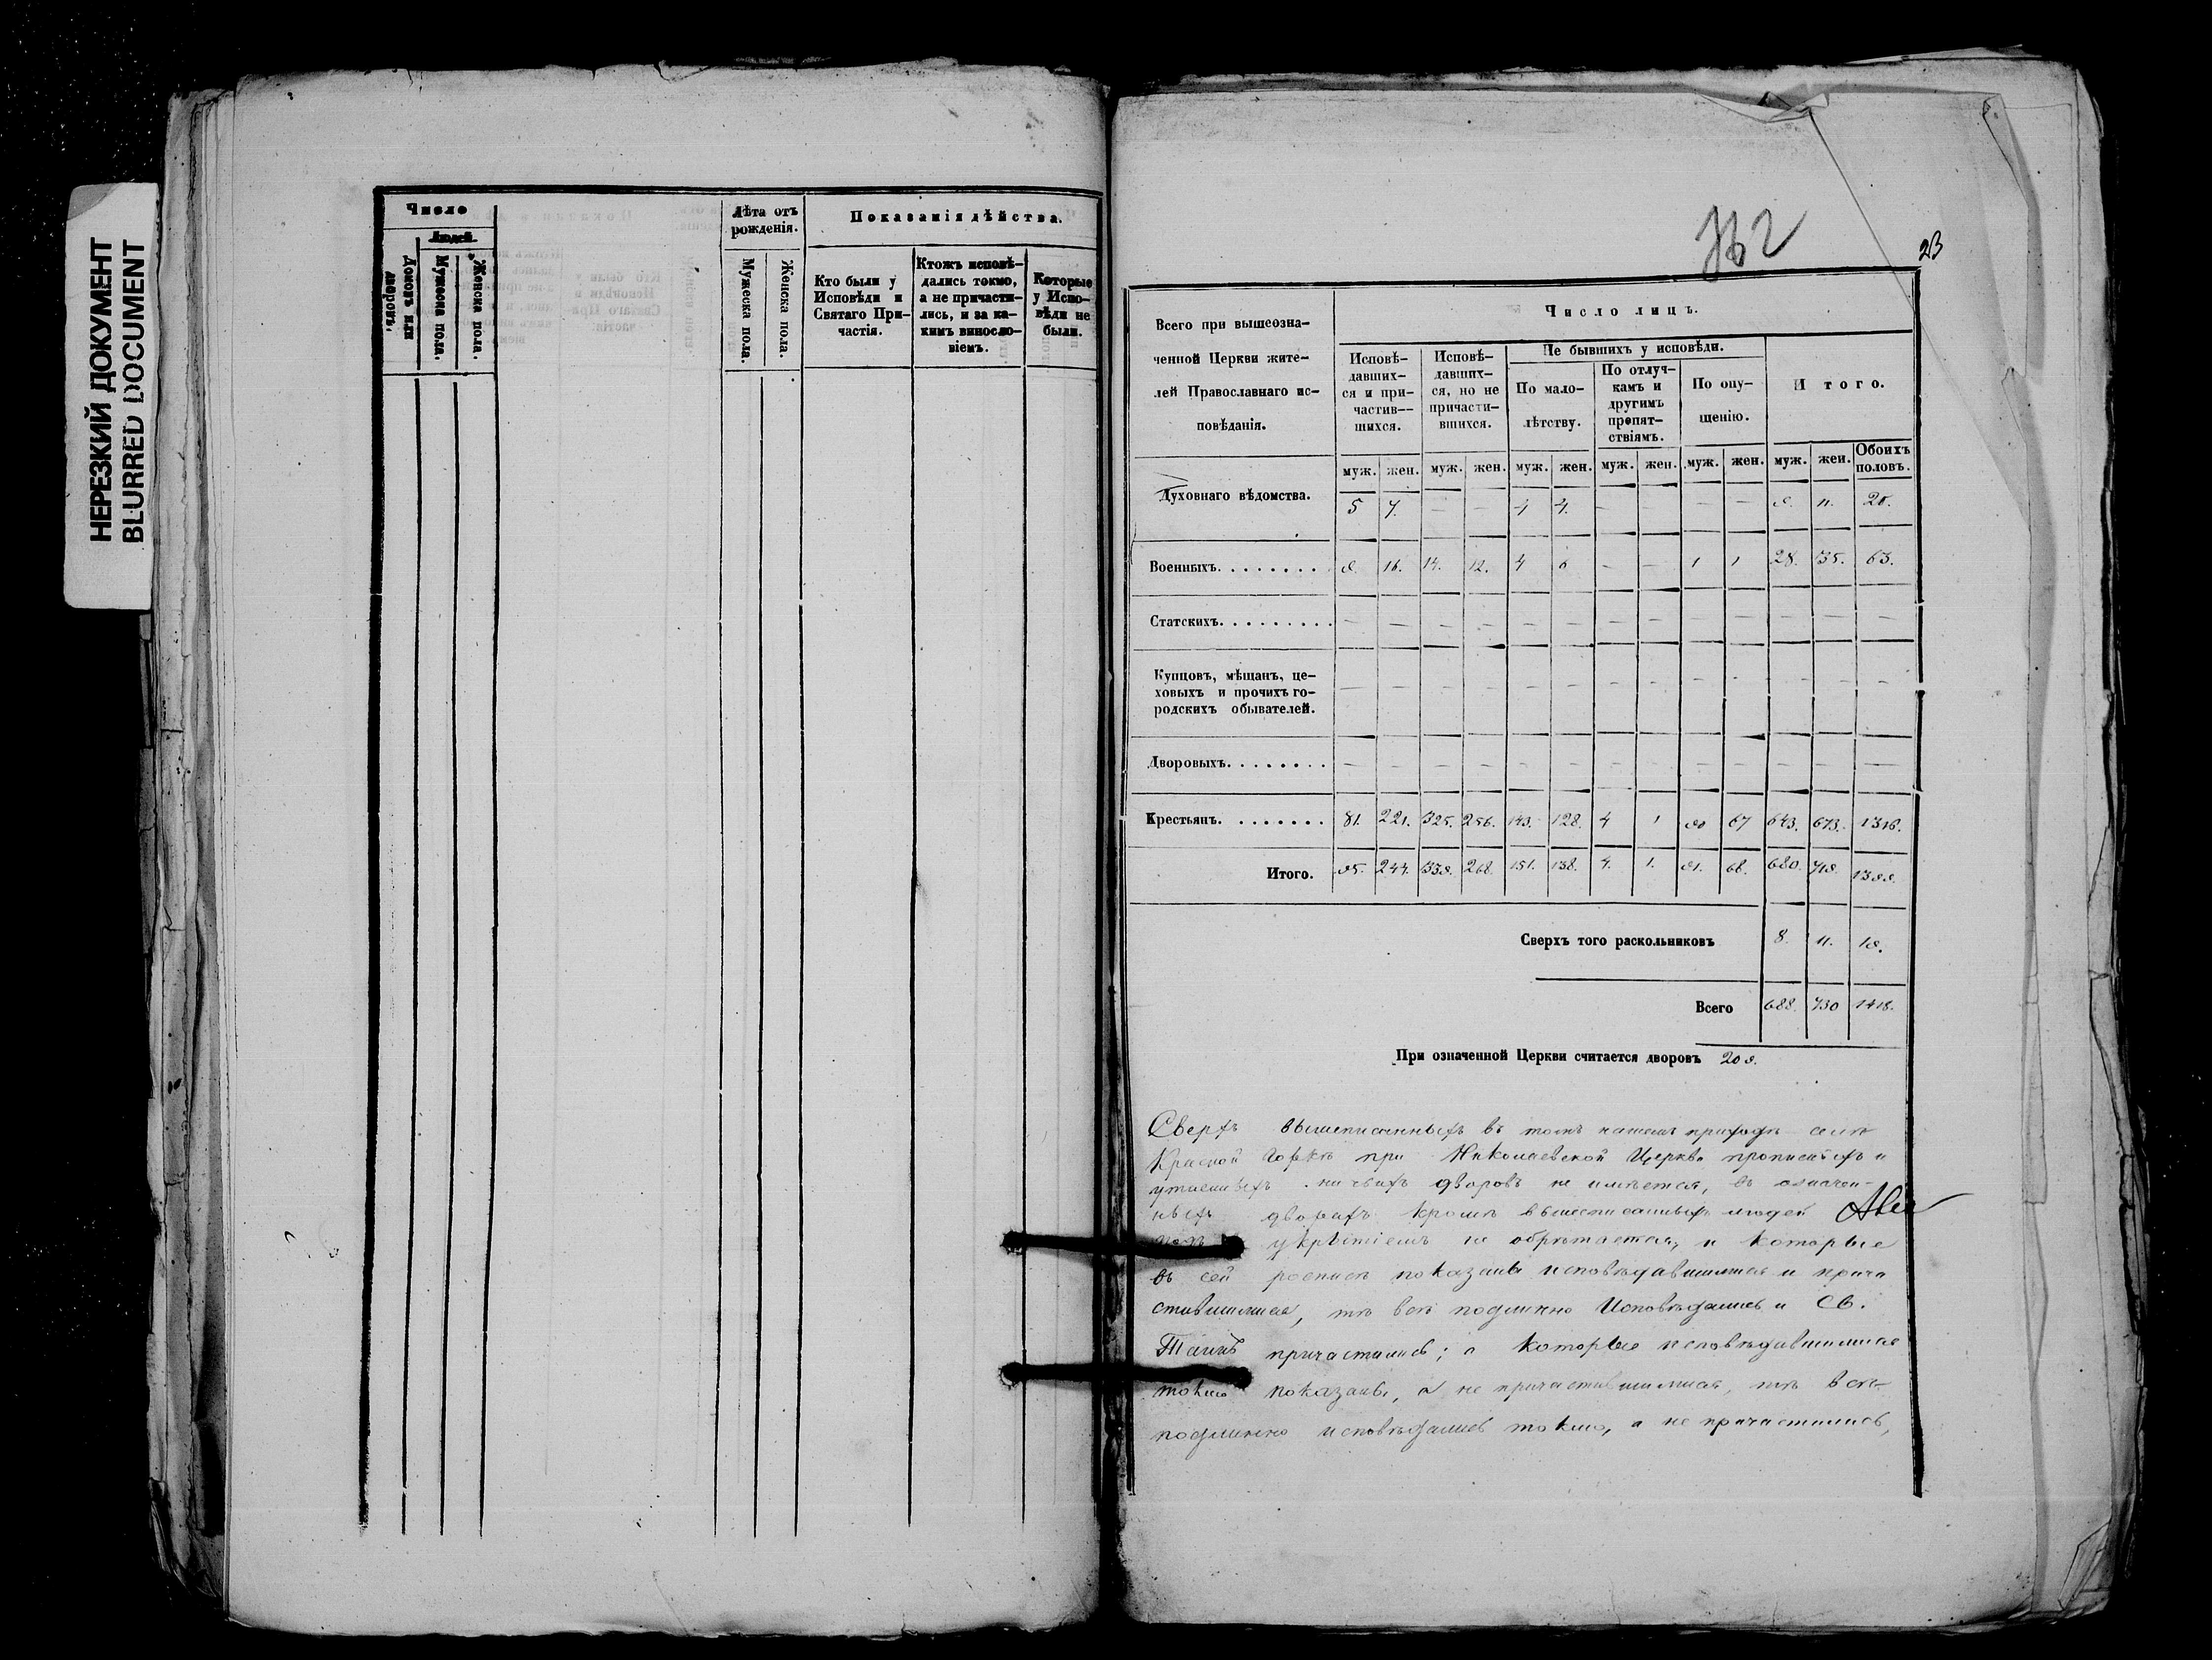 НЕРЕЗКИЙ ДОКУМЕНТ
BLURRED DOCUMENT
Число
Людей.
Домовъ или дворовъ.
Мужеска пола.
Женска пола.
Лѣта отъ рожденія.
Мужеска пола.
Женска пола.
Показанія дѣйства.
Кто были у
Исповѣди и
Святаго При-
частія.
Ктожъ исповѣ-
дались токмо,
а не причасти-
лись, и за ка-
кимъ винносло-
віемъ.
Которые
у Испо-
вѣди не
были.
23
Всего при вышеозна-
ченной Церкви жите-
лей Православнаго ис-
повѣданія.
Число лицъ.
Исповѣ-
давших-
ся и при-
частив-
шихся.
Исповѣ-
давших-
ся, но не
причасти-
вшихся.
Не бывшихъ у исповѣди.
По мало-
лѣтству.
По отлуч-
камъ и
другимъ
препят-
ствіямъ.
По опу-
щенію.
Итого.
муж. жен. муж. жен. муж. жен. муж. жен. муж. жен. муж. жен. Обоихъ половъ.
Духовнаго вѣдомства. 5 7. — — 4 4. — — — — 9. 11. 20.
Военныхъ. 9. 16. 14. 12. 4 6 — — 1 1 28. 35. 63.
Статскихъ. — — — — — — — — — — — — —
Купцовъ, мѣщанъ, це-
ховыхъ и прочихъ го-
родскихъ обывателей. — — — — — — — — — — — — —
Дворовыхъ. — — — — — — — — — — — — —
Крестьянъ. 81. 221. 325. 256. 143. 128. 4 1 90 67 643. 673. 1316.
Итого. 95. 244. 339. 268. 151. 138. 4. 1. 91. 68. 680. 719. 1399.
Сверхъ того раскольниковъ 8. 11. 19.
Всего 688. 730 1418.
При означенной Церкви считается дворовъ 209.
Сверхъ вышеписанныхъ въ томъ нашемъ приходѣ селѣ
Красной Горкѣ при Николаевской Церкви прописныхъ и
утаенныхъ ничьихъ дворовъ не имѣется, въ означен-
ныхъ дворахъ кромѣ вышеписанныхъ людей
подъ укрытіемъ не обрѣтается, и которые
въ сей росписи показаны исповѣдавшимися и прича
стившимися, тѣ всѣ подлинно Исповѣдались и Св.
Таинъ причастились; а которые исповѣдавшимися
токмо показаны, а не причастившимися, тѣ всѣ
подлинно исповѣдались токмо, а не причастились,